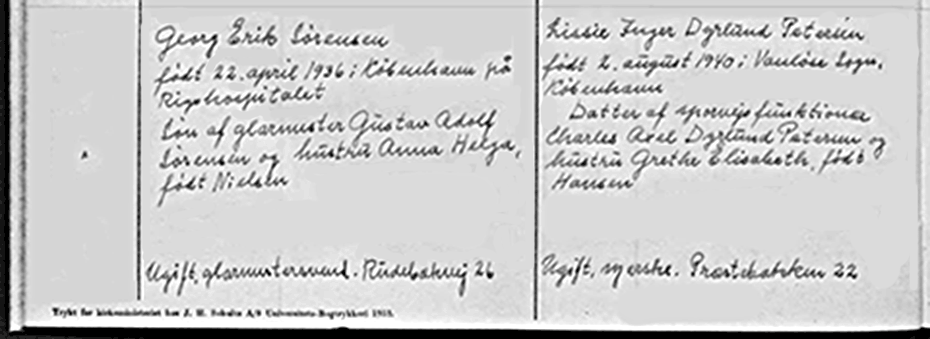 Georg Erik Sørensen
født 22. april 1936 i København på
Rigshospitalet
Søn af glarmester Gustav Adolf
Sørensen og hustru Anna Helga,
født Nielsen
Ugift, glarmestersvend. Rudebakvej 26
Lissie Inger Dyrlund Petersen
født 2. august 1940 i Vanløse Sogn,
København
Datter af sporvejsfunktionær
Charles Axel Dyrlund Petersen og
hustru Grethe Elisabeth, født
Hansen
Ugift, syerske. 22
Trykt for kirkeministeriet hos J. H. Schultz A/S Universitets-Bogtrykkeri